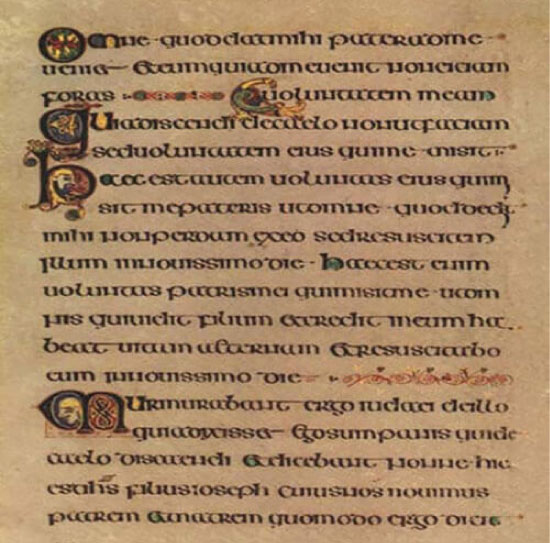 Omne quod dat mihi pater ad me
ueniet et eum qui ad me uenit non eiciam
foras uoluntatem meam
Quia discendi de caelo non ut faciam
sed uoluntatem eius qui me misit
Haec est autem uoluntas eius qui mi
sit me patris ut omne quod dedit
mihi non perdam ex eo sed resuscitem
illum in nouissimo die · haec est enim
uoluntas patris mei qui misit me ut om
nis qui uidit filium et credit in eum ha
beat uitam aeternam et resuscitabo
eum in nouissimo die
Murmurabant ergo iudaei de illo
quia dixisset Ego sum panis qui de
caelo discendi et dicebant nonne hic
est ihs filius ioseph cuius nos nouimus
patrem et matrem quomodo ergo dicit